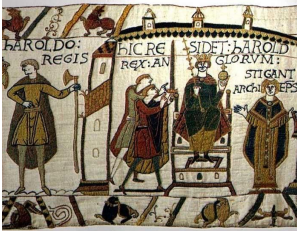 hAROLDO:
REGIS
hIC RE
SIDET: hAROLD
REX: AN
GLORVM:
STIGANT
ARChI EPS